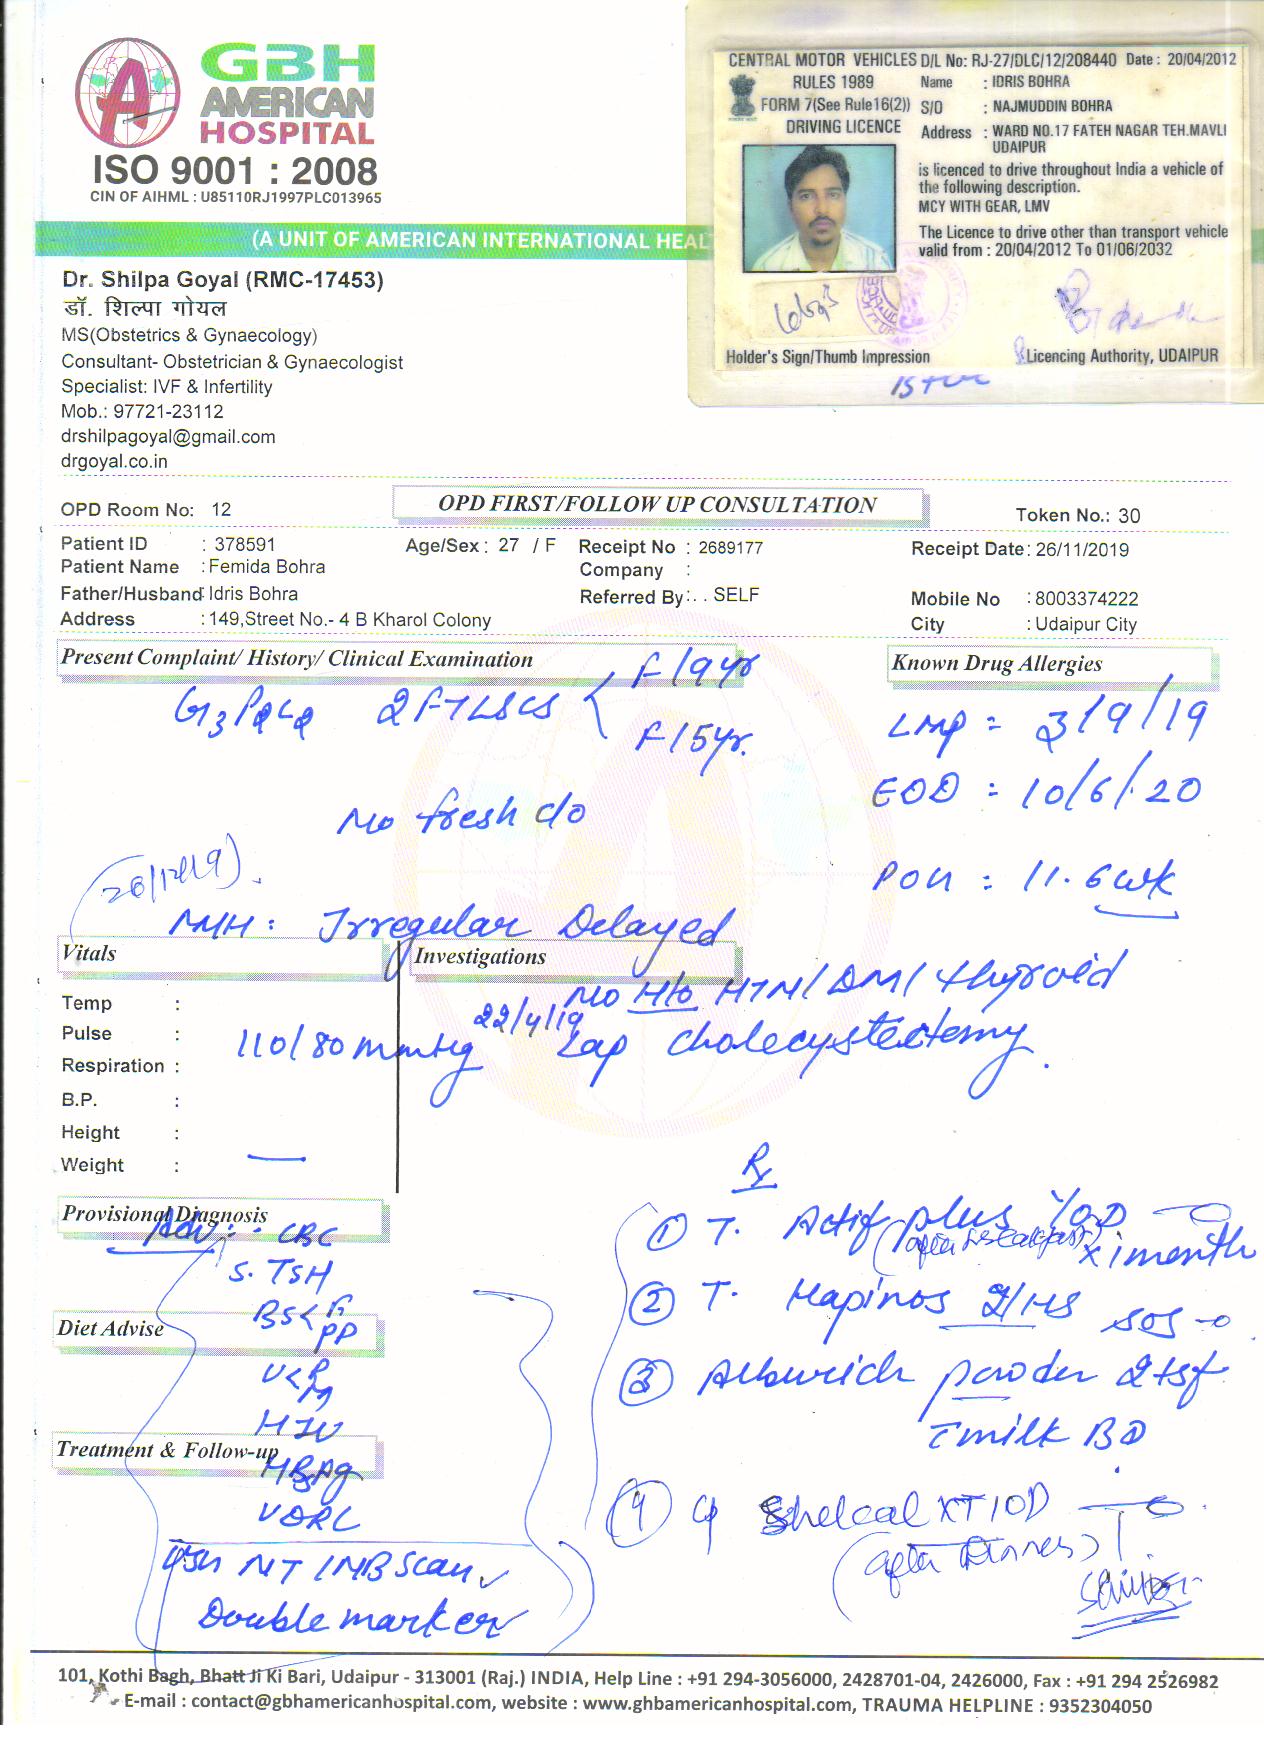 GBH
AMERICAN
HOSPITAL
ISO 9001 : 2008
CIN OF AIHML : U85110RJ1997PLC013965
(A UNIT OF AMERICAN INTERNATIONAL HEAL
CENTRAL MOTOR VEHICLES D/L No: RJ-27/DLC/12/208440 Date : 20/04/2012
RULES 1989 Name : IDRIS BOHRA
FORM 7(See Rule16(2)) S/O : NAJMUDDIN BOHRA
DRIVING LICENCE Address : WARD NO.17 FATEH NAGAR TEH.MAVLI
UDAIPUR
is licenced to drive throughout India a vehicle of
the following description.
MCY WITH GEAR, LMV
The Licence to drive other than transport vehicle
valid from : 20/04/2012 To 01/06/2032
Holder's Sign/Thumb Impression Licencing Authority, UDAIPUR
Dr. Shilpa Goyal (RMC-17453)
डॉ. शिल्पा गोयल
MS(Obstetrics & Gynaecology)
Consultant- Obstetrician & Gynaecologist
Specialist: IVF & Infertility
Mob.: 97721-23112
drshilpagoyal@gmail.com
drgoyal.co.in
OPD Room No: 12 OPD FIRST/FOLLOW UP CONSULTATION Token No.: 30
Patient ID : 378591 Age/Sex : 27 / F Receipt No : 2689177 Receipt Date: 26/11/2019
Patient Name : Femida Bohra Company :
Father/Husband: Idris Bohra Referred By: . . SELF Mobile No : 8003374222
Address : 149,Street No.- 4 B Kharol Colony City : Udaipur City
Present Complaint/ History/ Clinical Examination Known Drug Allergies
G3P2L2 2 FTLSCS F/9yr
F/5yr.
LMP = 3/9/19
EDD : 10/6/20
No fresh c/o
26/12/19).
POG : 11.6wk
M/H : Irregular Delayed
Vitals Investigations
No H/o HTN/DM/thyroid
22/4/19 Lap cholecystectomy.
Temp :
Pulse :
110/80 mmHg
Respiration :
B.P. :
Height :
Weight : —
Rx
Provisional Diagnosis
Adv :- CBC
S. TSH
BS< F
PP
Diet Advise
HIV
Treatment & Follow-up
HBsAg
VDRL
NT/NB Scan
Double marker
1) T. Actif plus 1/OD
(after breakfast) x 1 month
2) T. Hapinos 2/HS SOS
3) powder 2tsf
c milk BD
4) Shelcal XT 1OD
(after Dinner)
101, Kothi Bagh, Bhatt Ji Ki Bari, Udaipur - 313001 (Raj.) INDIA, Help Line : +91 294-3056000, 2428701-04, 2426000, Fax : +91 294 2526982
E-mail : contact@gbhamericanhospital.com, website : www.ghbamericanhospital.com, TRAUMA HELPLINE : 9352304050